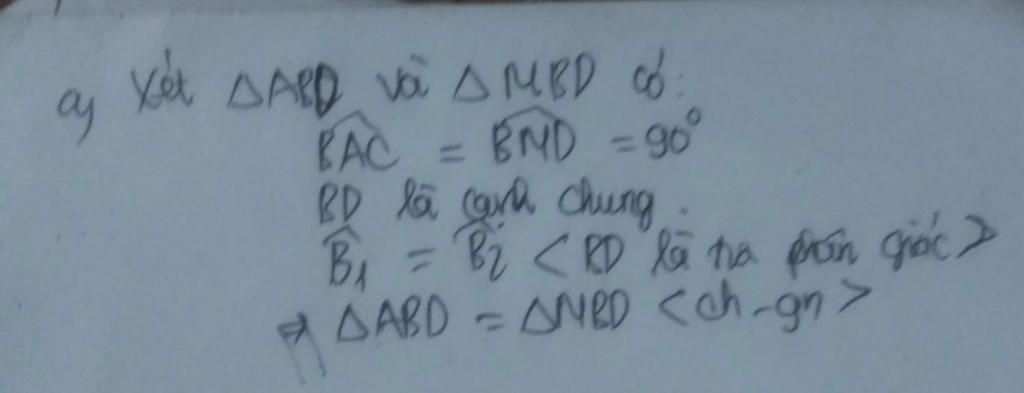 a, Xét ΔABD và ΔMBD có:
BAC = BMD = 90°
BD là cạnh chung.
B1 = B2 <BD là tia phân giác>
⇒ ΔABD = ΔMBD <ch-gn>